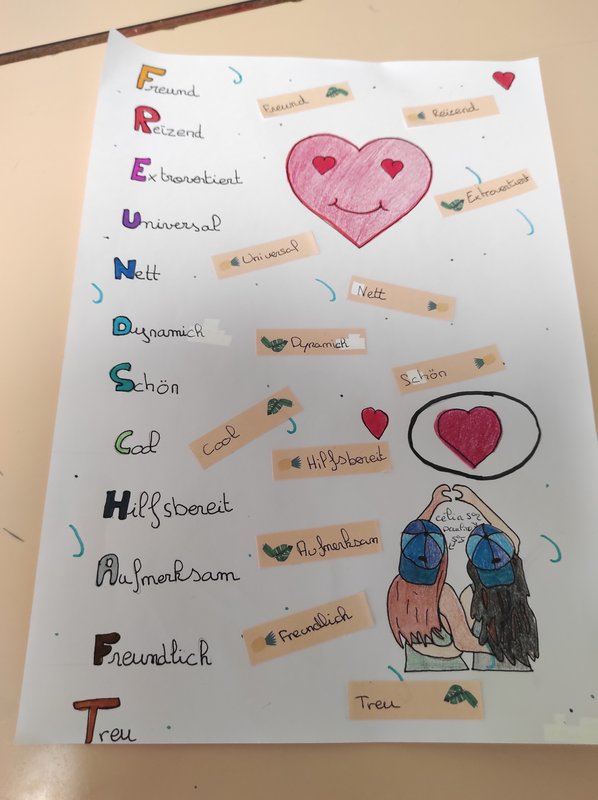 Freund
Reizend
Extrovertiert
Universal
Nett
Dynamich
Schön
Cool
Hilfsbereit
Aufmerksam
Freundlich
Treu
Freund
Reizend
Extrovertiert
Universal
Nett
Dynamich
Schön
Cool
Hilfsbereit
Aufmerksam
Freundlich
Treu
celia